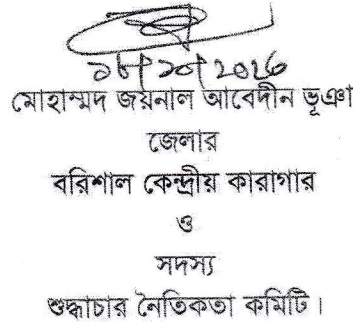 ১৮/১০/2026
মোহাম্মদ জয়নাল আবেদীন ভূঞা
জেলার
বরিশাল কেন্দ্রীয় কারাগার
ও
সদস্য
শুদ্ধাচার নৈতিকতা কমিটি।